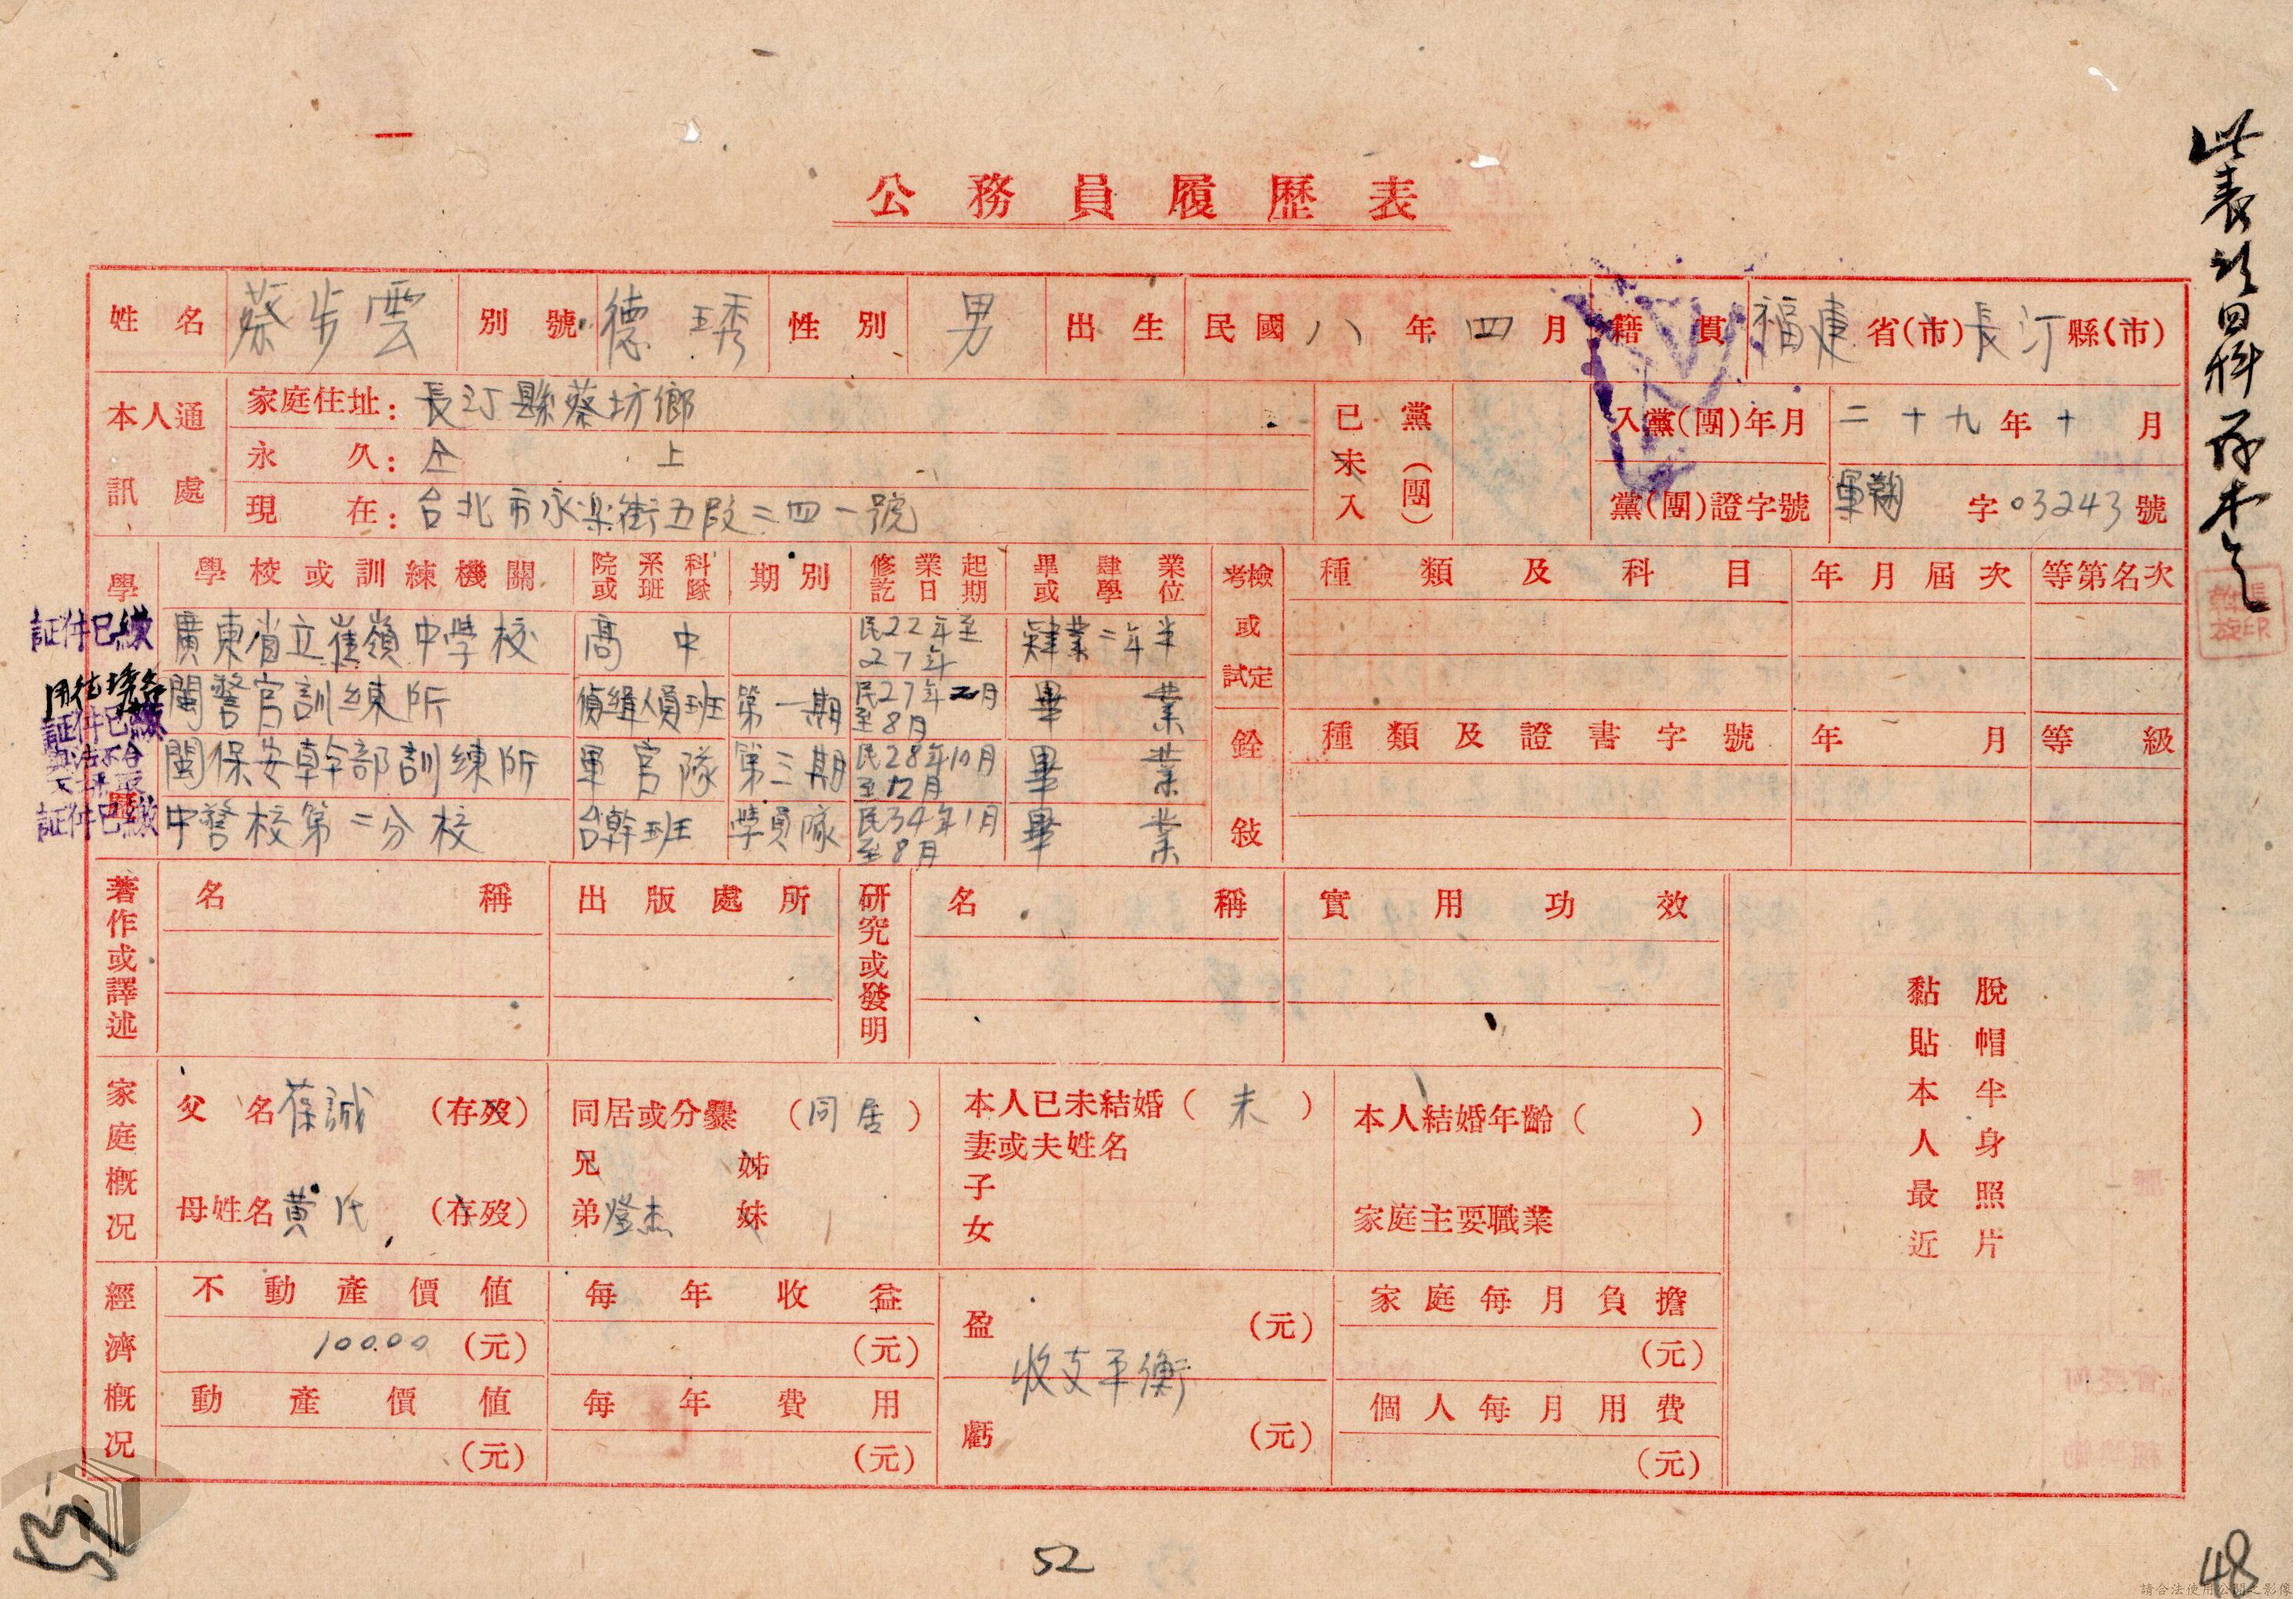 公務員履歷表
姓名 蔡步雲 別號 德琇 性別 男 出生 民國八年四月 籍貫 福建省(市)長汀縣(市)
本人通訊處
家庭住址：長汀縣蔡坊鄉
永久：仝上
現在：台北市永楽街五段二四一號
已未入黨(團)
入黨(團)年月 二十九年十月
黨(團)證字號 字03243號
學歷
學校或訓練機關 院系科或班隊 期別 修業起訖日期 畢肄業或學位
廣東省立 中學校 高中 民22年至27年 肄業二年半
閩警官訓練所 偵緝人員班 第一期 民27年2月至8月 畢業
閩保安幹部訓練所 軍官隊 第三期 民28年10月至12月 畢業
中警校第二分校 台幹班 學員隊 民34年1月至8月 畢業
証件已繳
証件已繳
証件已繳
考檢或試定 種類及科目 年月屆次 等第名次
銓敍 種類及證書字號 年月 等級
著作或譯述 名稱 出版處所
研究或發明 名稱 實用功效
家庭概况
父名 葆誠 (存歿)
母姓名 黃氏 (存歿)
同居或分爨 (同居)
兄 姊
弟 燈杰 妹
本人已未結婚(未)
妻或夫姓名
子
女
本人結婚年齡( )
家庭主要職業
脫帽半身照片
黏貼本人最近
經濟概况
不動產價值 100.00 (元)
每年收益 (元)
盈 (元)
收支平衡
虧 (元)
家庭每月負擔 (元)
動產價值 (元)
每年費用 (元)
個人每月用費 (元)
52
48
請合法使用公開之影像